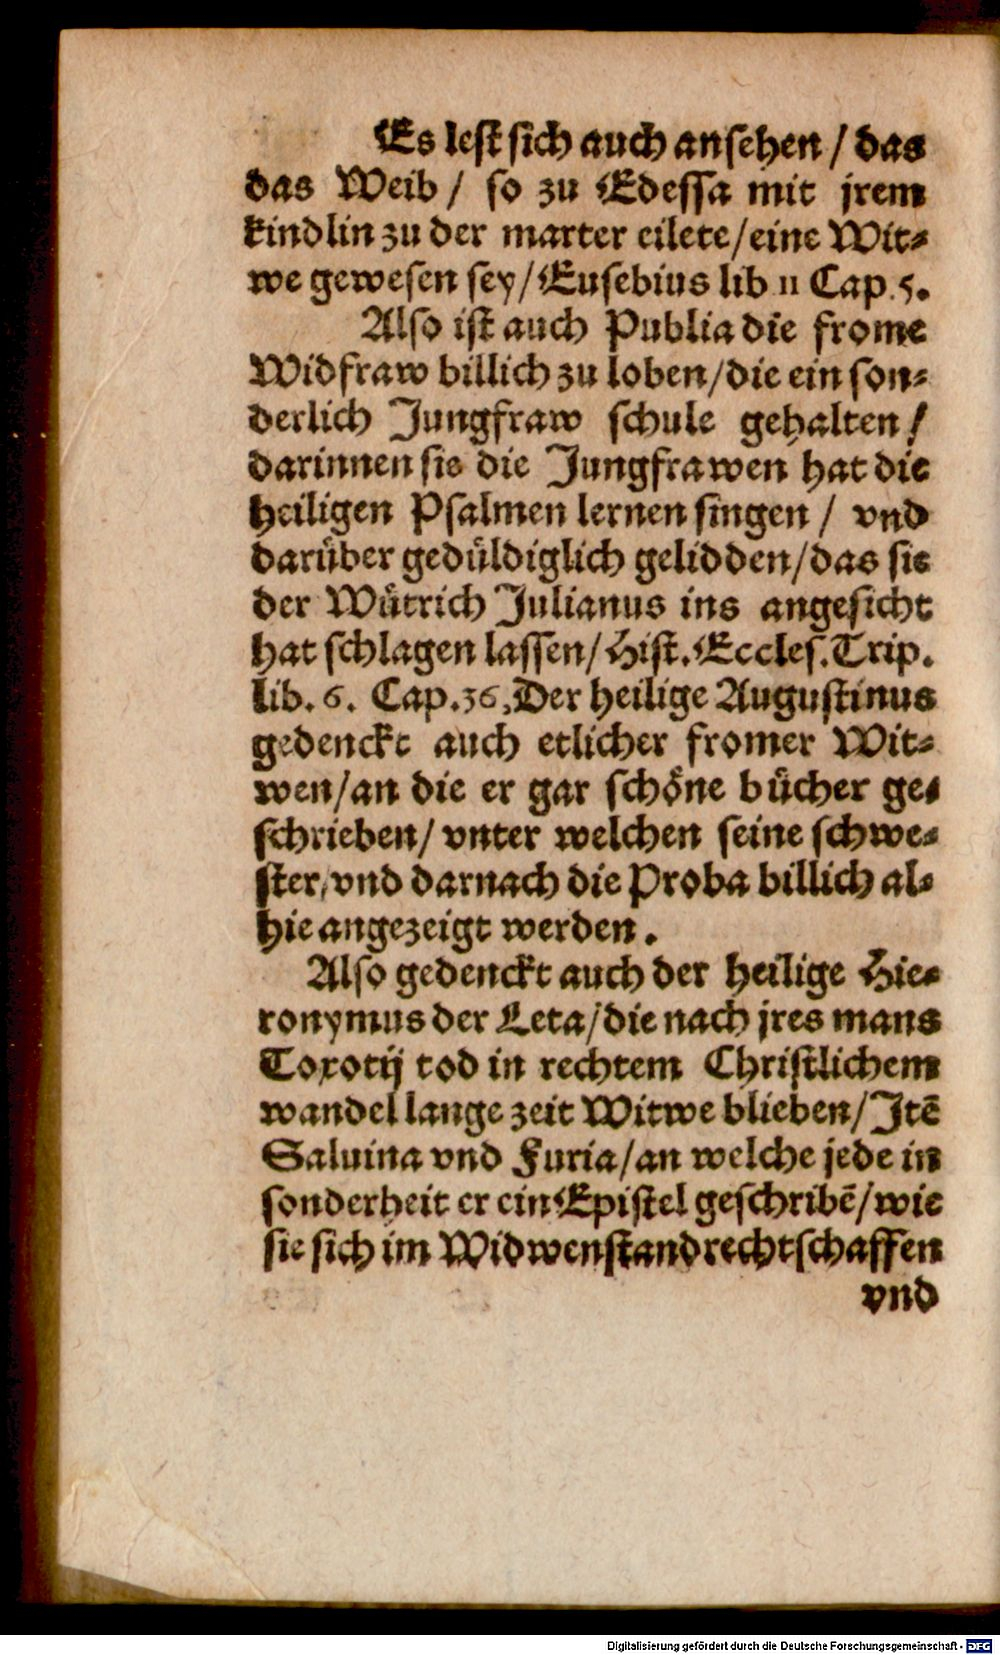 Es lest sich auch ansehen / das
das Weib / so zu Edessa mit jrem
kindlin zu der marter eilete / eine Wit⸗
we gewesen sey / Eusebius lib 11 Cap. 5.
Also ist auch Publia die frome
Widfraw billich zu loben / die ein son⸗
derlich Jungfraw schule gehalten /
darinnen sie die Jungfrawen hat die
heiligen Psalmen lernen singen / vnd
darüber gedüldiglich gelidden / das sie
der Wütrich Julianus ins angesicht
hat schlagen lassen / Hist. Eccles. Trip.
lib. 6. Cap. 36, Der heilige Augustinus
gedenckt auch etlicher fromer Wit⸗
wen / an die er gar schöne bücher ge⸗
schrieben / vnter welchen seine schwe⸗
ster, vnd darnach die Proba billich al⸗
hie angezeigt werden.
Also gedenckt auch der heilige Hie⸗
ronymus der Leta / die nach jres mans
Toxotij tod in rechtem Christlichem
wandel lange zeit Witwe blieben / Jtē
Saluina vnd Furia / an welche jede in
sonderheit er ein Epistel geschribē / wie
sie sich im Widwenstand rechtschaffen
vnd
Digitalisierung gefördert durch die Deutsche Forschungsgemeinschaft - DFG